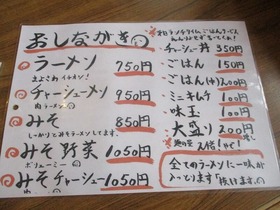 おしながき
ラーメン 750円
まよこめ イチオシ!
チャーシューメン 950円
肉ラーメン
みそ 850円
しっかりとみそラーメンしてます。
みそ野菜 1050円
ボリューミー
みそチャーシュー 1050円
平日ランチタイム ごはん
チャーシュー丼 350円
ごはん 150円
ごはん(小) 100円
ミニキムチ 100円
味玉 100円
大盛り 200円
麺の量 1.5倍
全てのラーメンに一味が
入っております「抜けます。」